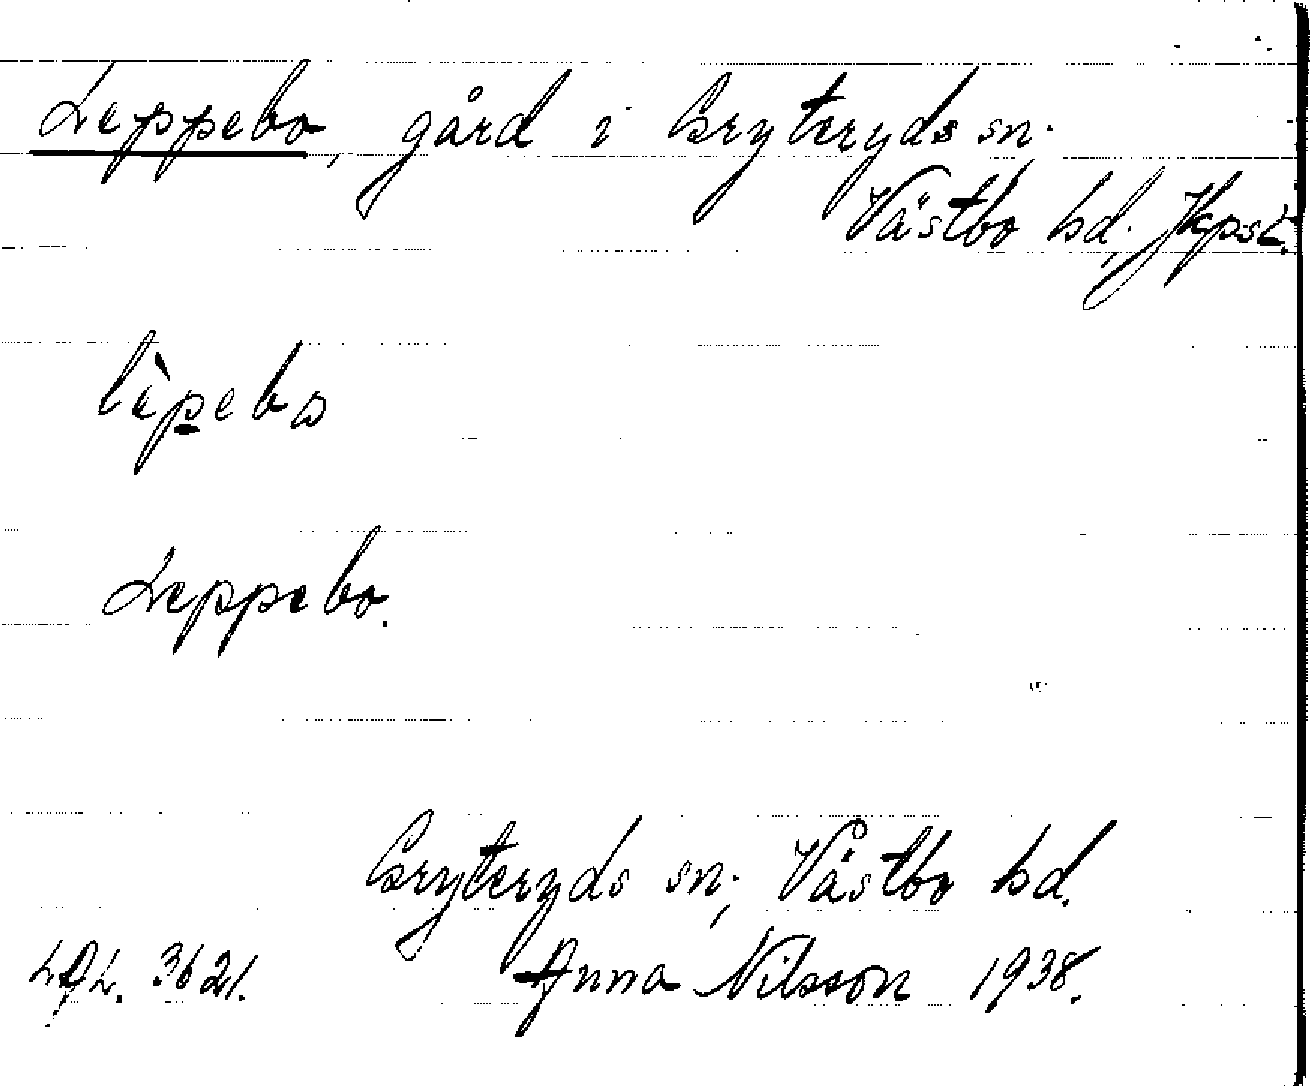 Leppebo, gård i Gryteryds sn.
Västbo hd, Jkpsl.
lèpebo
Leppebo.
Gryteryds sn, Västbo hd.
LAL. 3621. Anna Nilsson 1938.